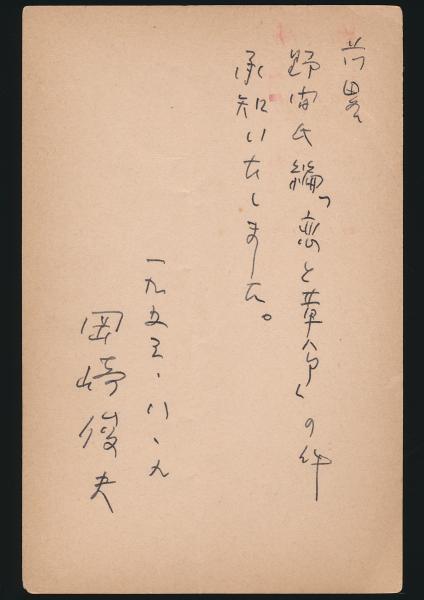 前畧
野間氏編「恋と革命」の件
承知いたしました。
一九五三・八・九
岡崎俊夫